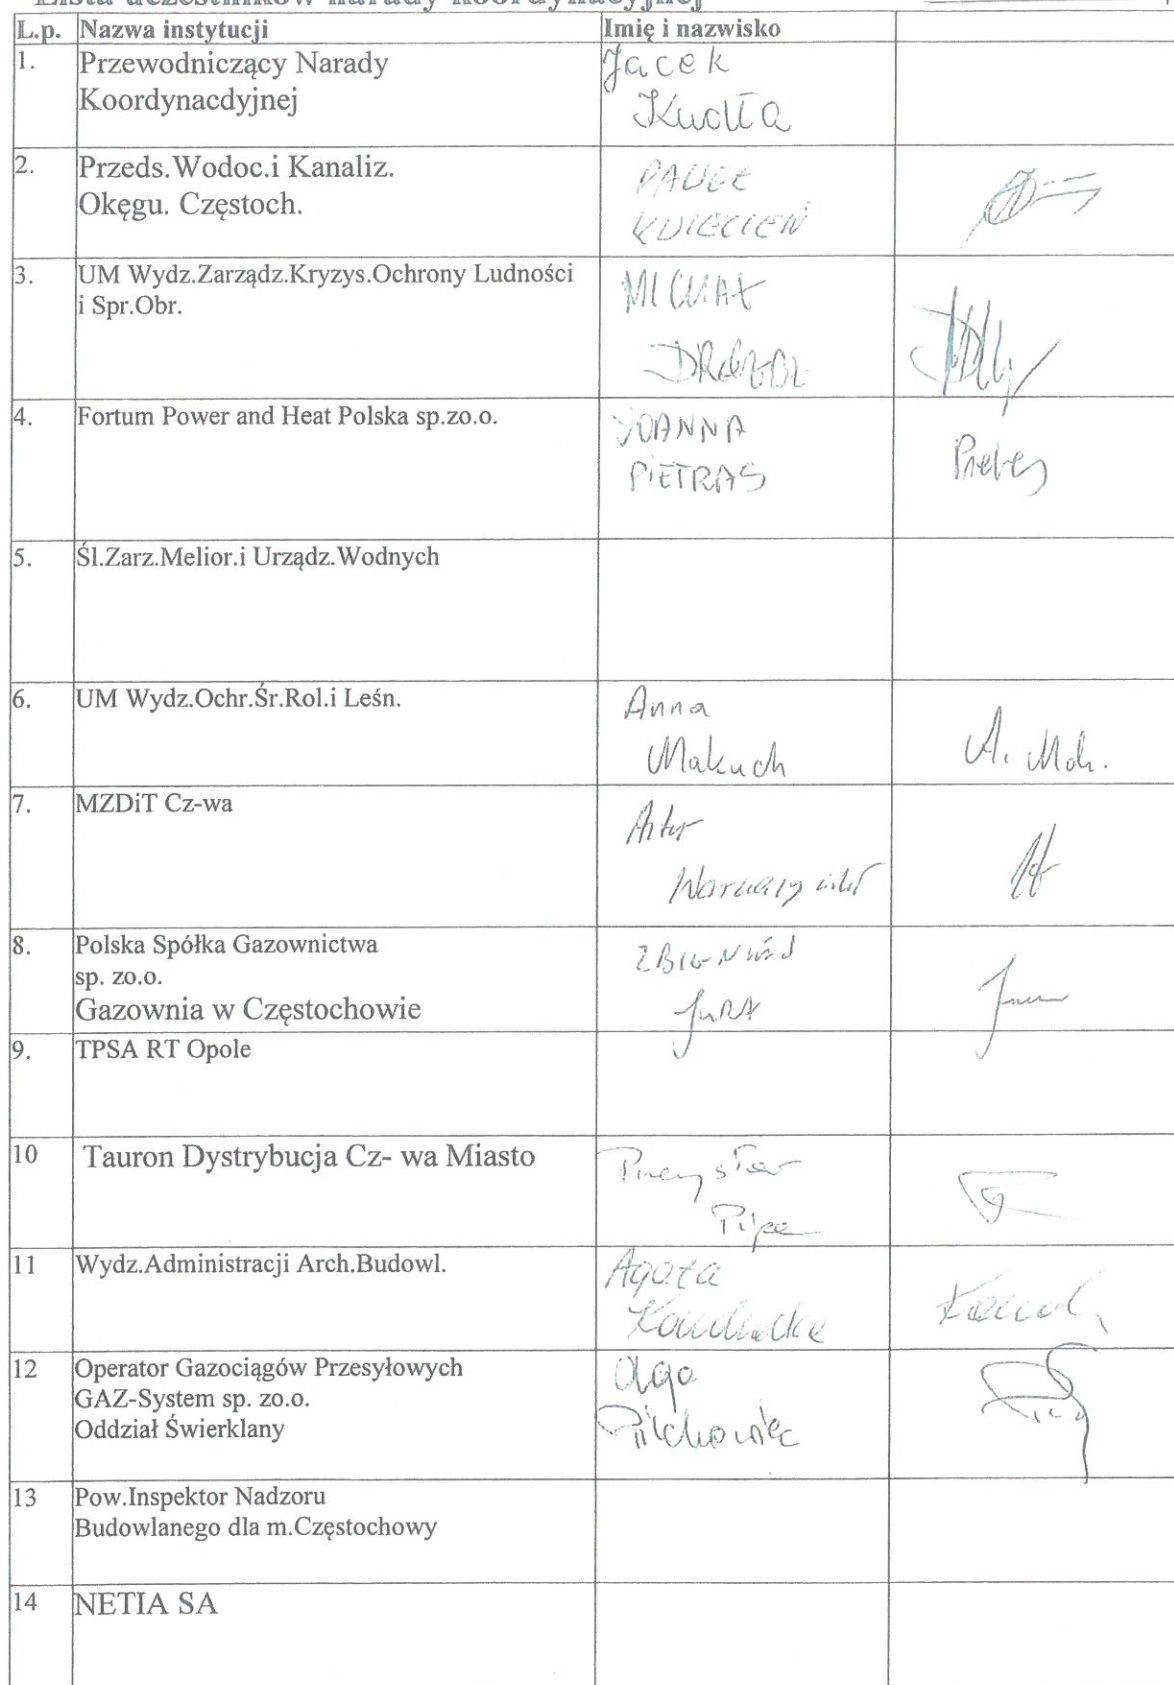 Lista uczestników narady koordynacyjnej
L.p. Nazwa instytucji Imię i nazwisko
1. Przewodniczący Narady Jacek
Koordynacdyjnej Kudła
2. Przeds.Wodoc.i Kanaliz. PAWEŁ
Okęgu. Częstoch. KWIECIEŃ
3. UM Wydz.Zarządz.Kryzys.Ochrony Ludności MICHAŁ
i Spr.Obr.
4. Fortum Power and Heat Polska sp.zo.o. JOANNA
PIETRAS
5. Śl.Zarz.Melior.i Urządz.Wodnych
6. UM Wydz.Ochr.Śr.Rol.i Leśn. Anna
Makuch A. Mak.
7. MZDiT Cz-wa Artur
8. Polska Spółka Gazownictwa ZBIGNIEW
sp. zo.o.
Gazownia w Częstochowie JURA
9. TPSA RT Opole
10 Tauron Dystrybucja Cz- wa Miasto Przemysław
11 Wydz.Administracji Arch.Budowl. Agata
12 Operator Gazociągów Przesyłowych Olga
GAZ-System sp. zo.o. Pilchowiec
Oddział Świerklany
13 Pow.Inspektor Nadzoru
Budowlanego dla m.Częstochowy
14 NETIA SA